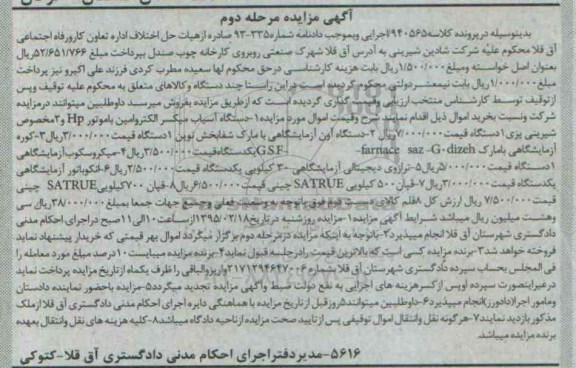 آگهی مزایده مرحله دوم
بدینوسیله درپرونده کلاسه ۹۴۰۵۶۵اجرایی وبموجب دادنامه شماره ۳۳۵-۹۳ صادره ازهیات حل اختلاف اداره تعاون کارورفاه اجتماعی
آق قلا محکوم علیه شرکت شادین شیرینی به آدرس آق قلا شهرک صنعتی روبروی کارخانه چوب صندل بپرداخت مبلغ ۵۲/۶۵۱/۷۶۶ریال
بعنوان اصل خواسته ومبلغ ۱/۵۰۰/۰۰۰ریال بابت هزینه کارشناسی درحق محکوم لها سعیده مطرب کردی فرزند علی اکبرو نیز پرداخت
مبلغ ۱/۰۰۰/۰۰۰ریال بابت نیمعشردولتی محکوم گردیده است دراین راستا چند دستگاه وکالاهای متعلق به محکوم علیه توقیف وپس
ازتوقیف توسط کارشناس منتخب ارزیابی وقیمت گذاری گردیده است که ازطریق مزایده بفروش میرسد داوطلبین میتوانند درمزایده
شرکت ونسبت بخرید اموال ذیل اقدام نمایند شرح وقیمت اموال مورد مزایده۱-دستگاه آسیاب میکسر الکتروامین باموتور Hp و۲مخصوص
شیرینی پزی ۱دستگاه قیمت ۷/۰۰۰/۰۰۰ریال ۲-دستگاه آون آزمایشگاهی با مارک شفابخش نوین ۱دستگاه قیمت ۳/۰۰۰/۰۰۰ریال۳-کوره
آزمایشگاهی بامارک farnace saz -G·dizeh -G·S·F یکدستگاه قیمت ۳/۵۰۰/۰۰۰ریال۴-میکروسکوب آزمایشگاهی
۱دستگاه قیمت ۵/۰۰۰/۰۰۰ریال۵-ترازوی دیجیتالی آزمایشگاهی ۳۰ کیلویی یکدستگاه قیمت ۲/۵۰۰/۰۰۰ریال۶-انکوباتور آزمایشگاهی
یکدستگاه قیمت ۳/۰۰۰/۰۰۰ریال۷-قپان ۵۰۰ کیلویی SATRUE چینی قیمت ۶/۵۰۰/۰۰۰ریال۸-قپان ۷۰۰کیلوییSATRUE چینی
قیمت ۷/۵۰۰/۰۰۰ ریال ارزش کل ۸قلم کالای دست دوم فوق باتوجه به وضعیت فعلی وجمیع جهات جمعا بمبلغ ۳۸/۰۰۰/۰۰۰ریال سی
وهشت میلیون ریال میباشد شرایط آگهی مزایده۱-مزایده روزشنبه درتاریخ ۱۳۹۵/۰۳/۱۸ازساعت۱۰الی۱۱صبح دراجرای احکام مدنی
دادگستری شهرستان آق قلا انجام میپذیرد۲-باتوجه به اینکه مزایده درمرحله دوم برگزار میگردد اموال بهر قیمتی که خریدار پیشنهاد نماید
فروخته خواهد شد۳-برنده مزایده کسی است که بالاترین قیمت رادرجلسه قبول نماید۴-برنده مزایده میبایست ۱۰ درصد مبلغ مورد معامله را
فی المجلس بحساب سپرده دادگستری شهرستان آق قلا بشماره ۲۱۷۱۲۹۴۶۴۷۰۰۶واریزوالباقی را ظرف یکماه ازتاریخ مزایده پرداخت نماید
درغیراینصورت سپرده اوپس ازکسرهزینه های اجرایی به نفع دولت ضبط وآگهی مزایده تجدید میگردد۵-مزایده باحضور نماینده دادستان
ومامور اجرا(دادورز)انجام میپذیرد۶-داوطلبین میتوانند۵روزقبل ازتاریخ مزایده با هماهنگی دایره اجرای احکام مدنی دادگستری آق قلا ازملک
مذکور بازدید نمایند۷-هرگونه نقل وانتقال اموال توقیفی پس از تایید صحت مزایده ازناحیه دادگاه میباشد۸-کلیه هزینه های نقل وانتقال بعهده
برنده مزایده میباشد.
۵۶۱۶-مدیردفتراجرای احکام مدنی دادگستری آق قلا-کتوکی